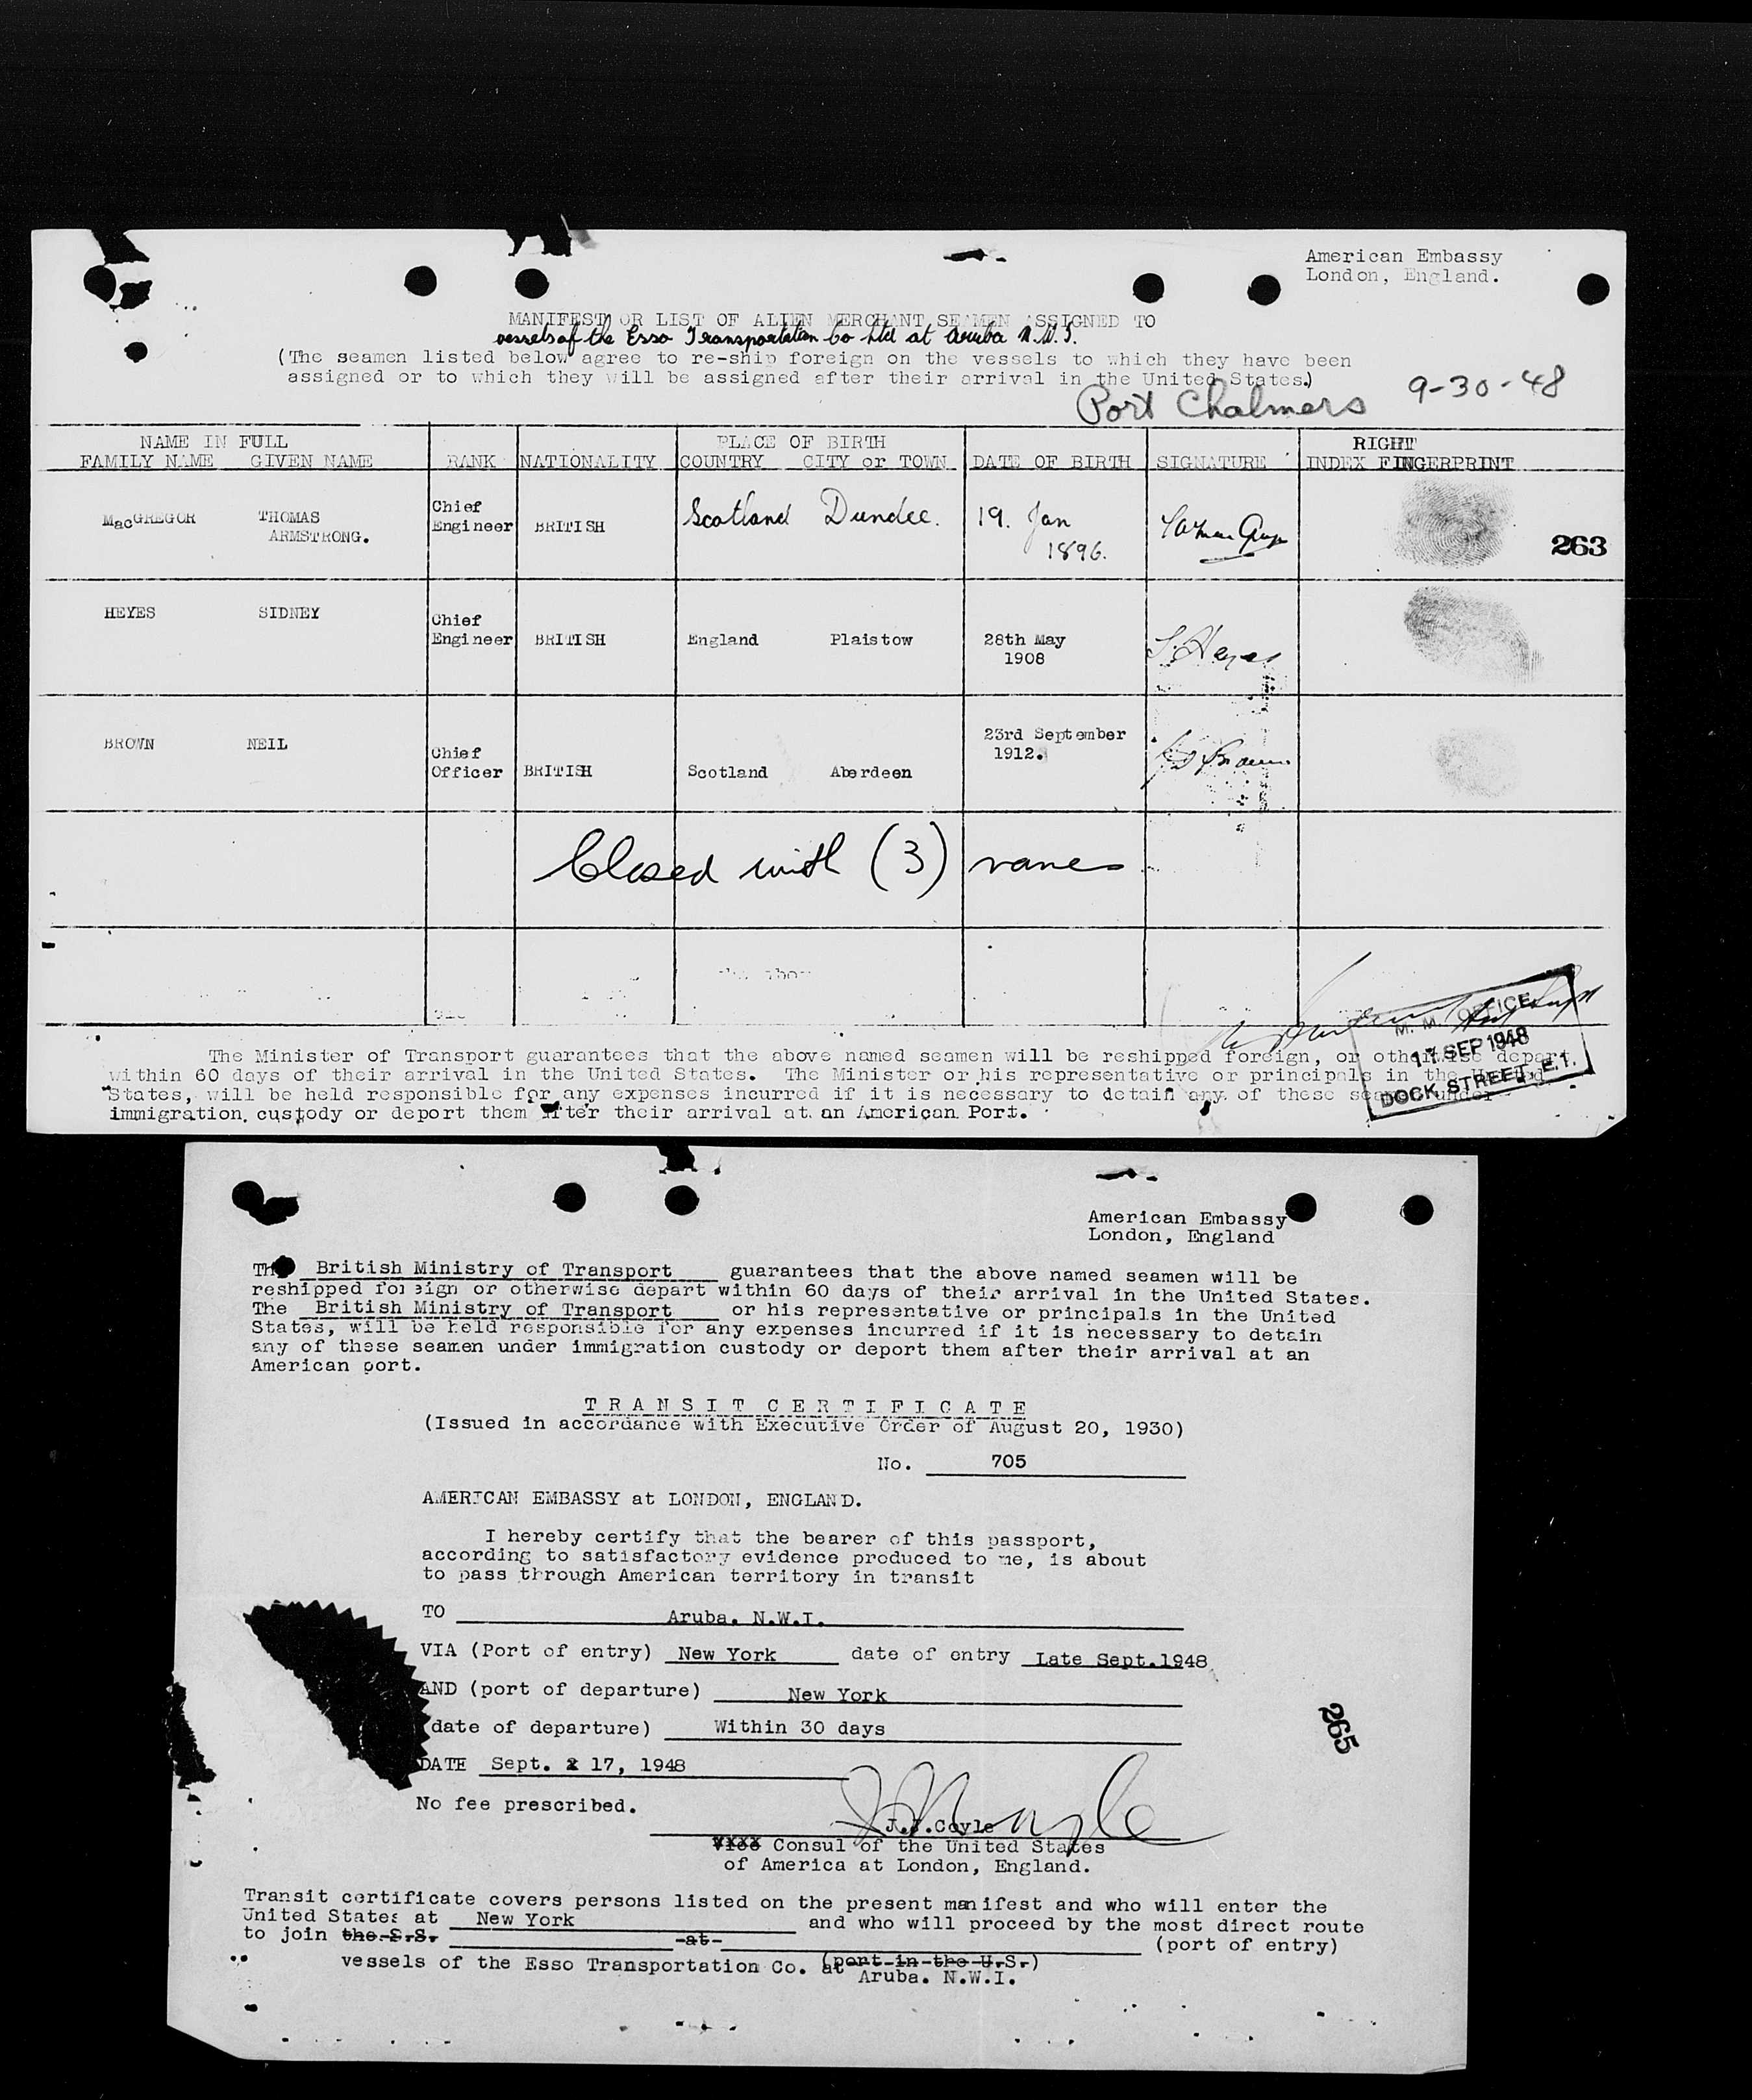 American Embassy
London, England.
MANIFEST OR LIST OF ALIEN MERCHANT SEAMEN ASSIGNED TO
vessels of the Esso Transportation Co Ltd at Aruba N.W.I.
(The seamen listed below agree to re-ship foreign on the vessels to which they have been
assigned or to which they will be assigned after their arrival in the United States.)
Port Chalmers 9-30-48
NAME IN FULL PLACE OF BIRTH RIGHT
FAMILY NAME GIVEN NAME RANK NATIONALITY COUNTRY CITY or TOWN DATE OF BIRTH SIGNATURE INDEX FINGERPRINT
MacGREGOR THOMAS ARMSTRONG. Chief Engineer BRITISH Scotland Dundee. 19. Jan 1896.
263
HEYES SIDNEY Chief Engineer BRITISH England Plaistow 28th May 1908 S. Heyes
BROWN NEIL Chief Officer BRITISH Scotland Aberdeen 23rd September 1912. Brown
Closed with (3) names
M. M. OFFICE
17 SEP 1948
DOCK STREET, E.1.
The Minister of Transport guarantees that the above named seamen will be reshipped foreign, or otherwise depart
within 60 days of their arrival in the United States. The Minister or his representative or principals in the United
States, will be held responsible for any expenses incurred if it is necessary to detain any of these seamen under
immigration custody or deport them after their arrival at an American Port.
American Embassy
London, England
The British Ministry of Transport guarantees that the above named seamen will be
reshipped foreign or otherwise depart within 60 days of their arrival in the United States.
The British Ministry of Transport or his representative or principals in the United
States, will be held responsible for any expenses incurred if it is necessary to detain
any of these seamen under immigration custody or deport them after their arrival at an
American port.
TRANSIT CERTIFICATE
(Issued in accordance with Executive Order of August 20, 1930)
No. 705
AMERICAN EMBASSY at LONDON, ENGLAND.
I hereby certify that the bearer of this passport,
according to satisfactory evidence produced to me, is about
to pass through American territory in transit
TO Aruba. N.W.I.
VIA (Port of entry) New York date of entry Late Sept.1948
AND (port of departure) New York
(date of departure) Within 30 days
265
DATE Sept. 17, 1948
No fee prescribed.
J.J.Coyle
Vice Consul of the United States
of America at London, England.
Transit certificate covers persons listed on the present manifest and who will enter the
United States at New York and who will proceed by the most direct route
to join the S.S. at (port of entry)
(port in the U.S.)
vessels of the Esso Transportation Co. at Aruba. N.W.I.